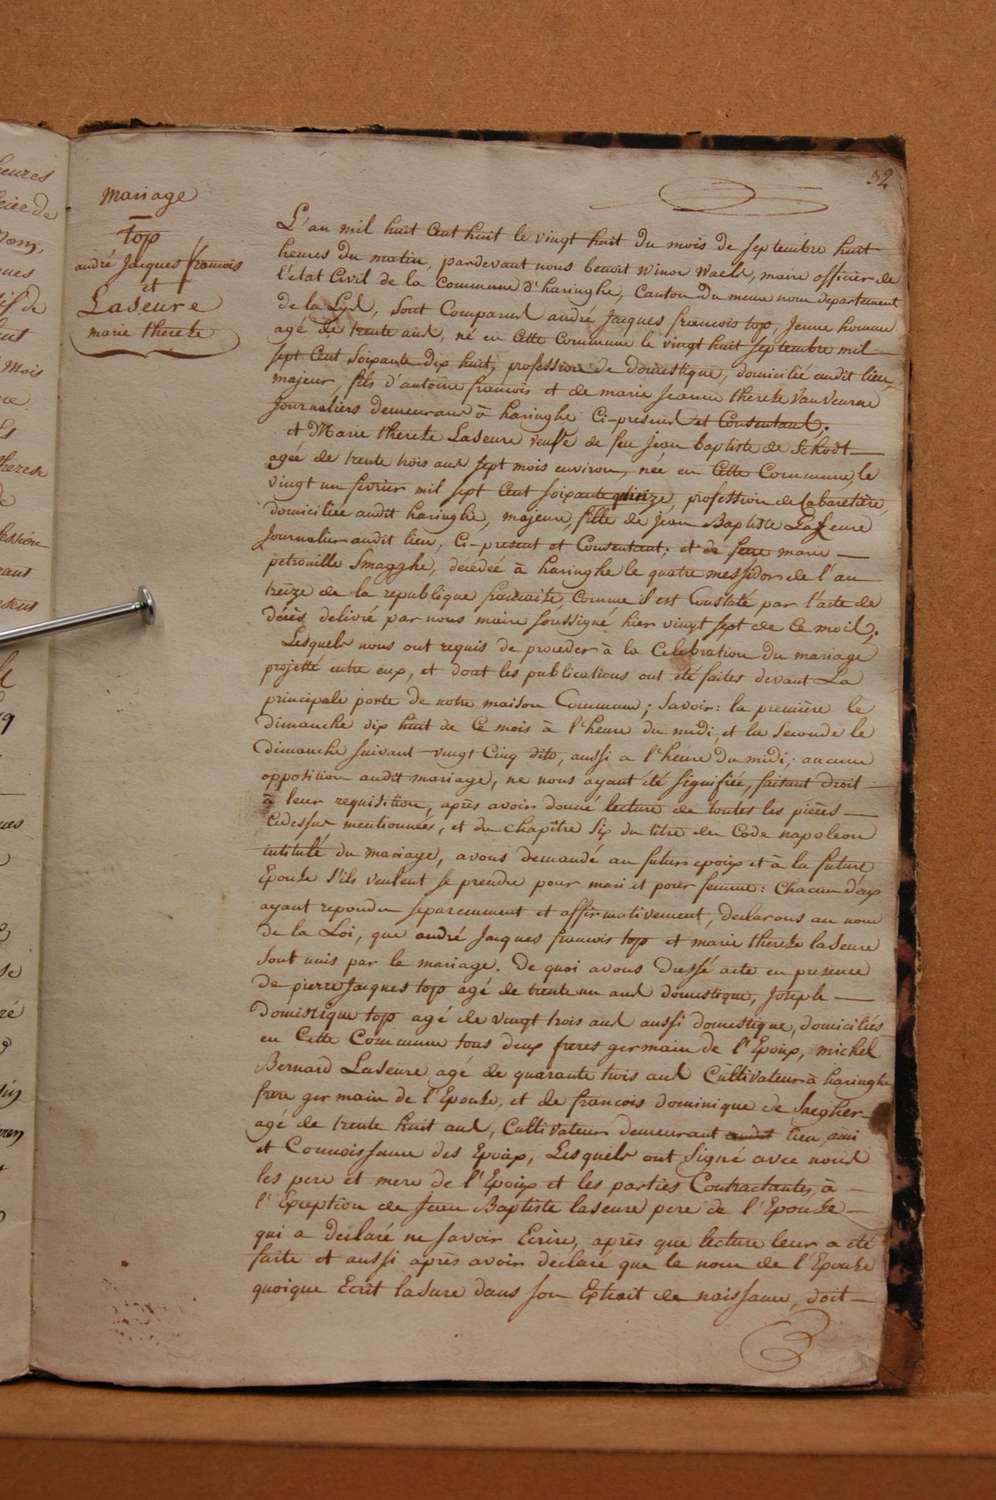 52
mariage
top
andré Jacques francois
et
Laseure
marie thereze
L'an mil huit Cent huit le vingt huit du mois de septembre huit
heures du matin, pardevant nous benoit winoc Waels, maire officier de
l'état Civil de la Commune d'haringhe, Canton du meme nom departement
de la Lys, sont Comparus andré Jacques francois top, Jeune homme
agé de trente ans, né en Cette Commune le vingt huit septembre mil
sept Cent soixante dix huit, profession de domestique, domicilié audit lieu,
majeur, fils d'antoine francois et de marie Jeanne thereze Vanveurne
Journaliers demeurans à haringhe Ci-presens et Consentans.
et Marie thereze Laseure veuve de feu jean baptiste de Schodt
agée de trente trois ans sept mois environ, née en Cette Commune, le
vingt un fevrier mil sept Cent soixante quinze, profession de Cabaretière,
domiciliée audit haringhe, majeure, fille de jean Baptiste Laseure
Journalier audit lieu, Ci-present et Consentant; et de feue marie
petronille Smagghe, décédée à haringhe le quatre messidor de l'an
treize de la republique francaise, Comme il est Constaté par l'acte de
décès delivré par nous maire soussigné hier vingt sept de Ce mois.
Lesquels nous ont requis de proceder à la Celebration du mariage
projetté entre eux, et dont les publications ont été faites devant La
principale porte de notre maison Commune; Savoir: la première le
dimanche dix huit de Ce mois à l'heure du midi, et la seconde le
dimanche suivant vingt Cinq dito, aussi a l'heure du midi; aucune
opposition audit mariage, ne nous ayant été signifiée, faisant droit
à leur requisition, après avoir donné lecture de toutes les pièces
Cidessus mentionnées, et du chapître six du titre du Code napoleon
intitulé du mariage, avons demandé au futur epoux et à la future
Epouze s'ils veulent se prendre pour mari et pour femme: Chacun d'eux
ayant repondu separemment et affirmativement, declarons au nom
de la Loi, que andré Jacques francois top et marie thereze laseure
sont unis par le mariage. De quoi avons Dressé acte en presence
de pierre Jacques top agé de trente un ans domestique, Joseph
Dominique top agé de vingt trois ans aussi domestique, domiciliés
en Cette Commune tous deux freres germain de l'Epoux, michel
Bernard Laseure agé de quarante trois ans Cultivateur à haringhe
frere germain de l'Epouze, et de francois dominique de Saegher
agé de trente huit ans, Cultivateur demeurant audit lieu, ami
et Connoissance des Epoux, Lesquels ont signé avec nous
les pere et mere de l'Epoux et les parties Contractantes, à
l'Exception de Jean Baptiste laseure pere de l'Epouze
qui a declaré ne savoir Ecrire, après que lecture leur a été
faite et aussi après avoir declaré que le nom de l'Epouze
quoique Ecrit lasure dans son Extrait de naissance, doit